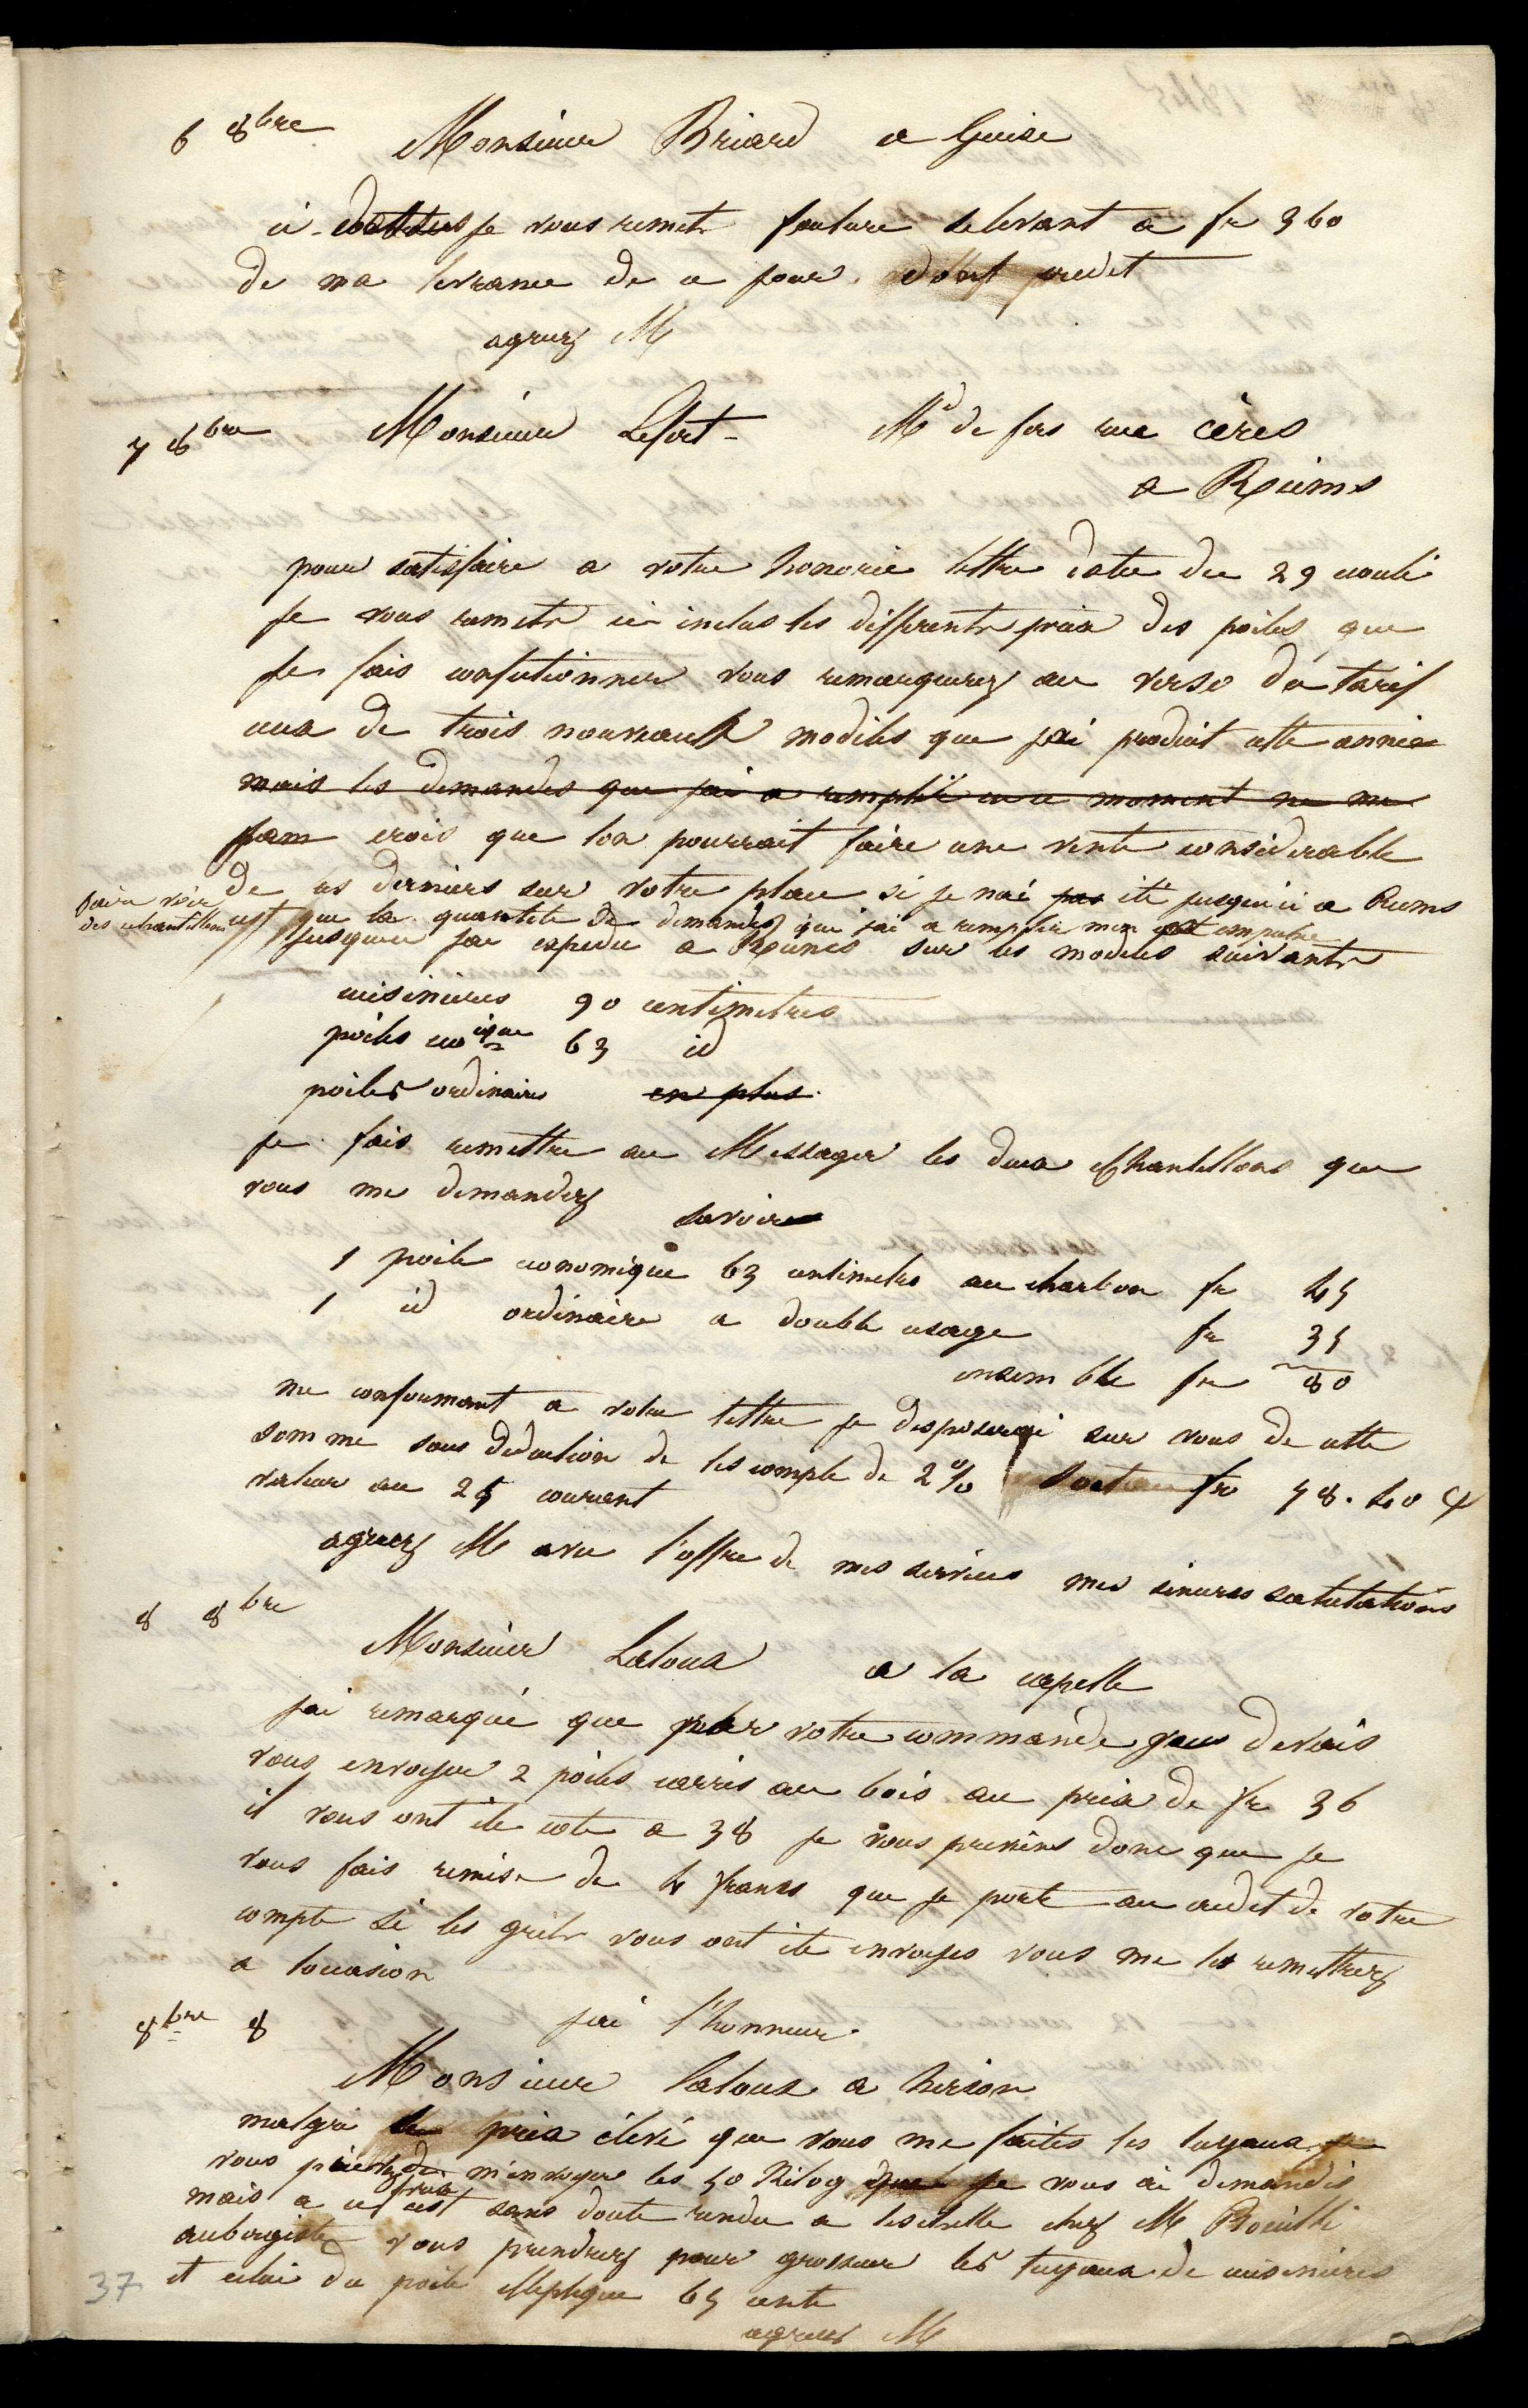 6 8bre Monsieur Briard a Guise
ci je vous remets facture selevant a fr 360
de ma livrance de ce jour. dont credit
agreez M
7 8bre Monsieur Lefort - Md de fers rue cères
a Reims
pour satisfaire a votre honorée lettre datee du 29 ecoulé
je vous remets ci inclus les differents prix des poiles que
je fais confectionner vous remarquerez au verso du tarif
ceux de trois nouveaux modeles que jai produit cette année
mais les demandes que jai a remplir en ce moment ne me
crois que lon pourrait faire une vente considerable
de ces derniers sur votre place si je nai pas été jusquici a Reims
faire voir des echantillons cest que la quantité de demandes que jai a remplir men empeche
jusquici jai expedié a Reims sur les modeles suivants
cuisinieres 90 centimetres
poiles ecoique 63 id
poiles ordinaires en plus
je fais remettre au Messager les deux echantillons que
vous me demandez
savoir
1 poile economique 63 centimetres au charbon fr 45
1 id ordinaire a double usage fr 35
ensemble fr 80
me conformant a votre lettre je disposerai sur vous de cette
somme sous deduction de lescompte de 2% soit fr 78.40 c
valeur au 25 courant
agreez M avec l'offre de mes services mes sinceres salutations
8 8bre
Monsieur Laloux a la capelle
jai remarqué que par votre commande je devais
vous envoyer 2 poiles carrés au bois au prix de fr 36
il vous ont été coté a 38 je vous previens donc que je
vous fais remise de 4 francs que je porte au credit de votre
compte si les grils vous ont été envoyes vous me les remettrez
a loccasion
jai l'honneur.
8bre 8
Monsieur Laloux a hirson
malgré le prix élevé que vous me faites les tuyaux je
vous prierai de m'envoyer les 50 Kilog que je vous ai demandés
mais a ce prix cest sans doute rendu a leschelle chez M
aubergiste vous prendrez pour grosseur les tuyaux de cuisinieres
et celui du poile elleptique 65 cents
agreez M
37